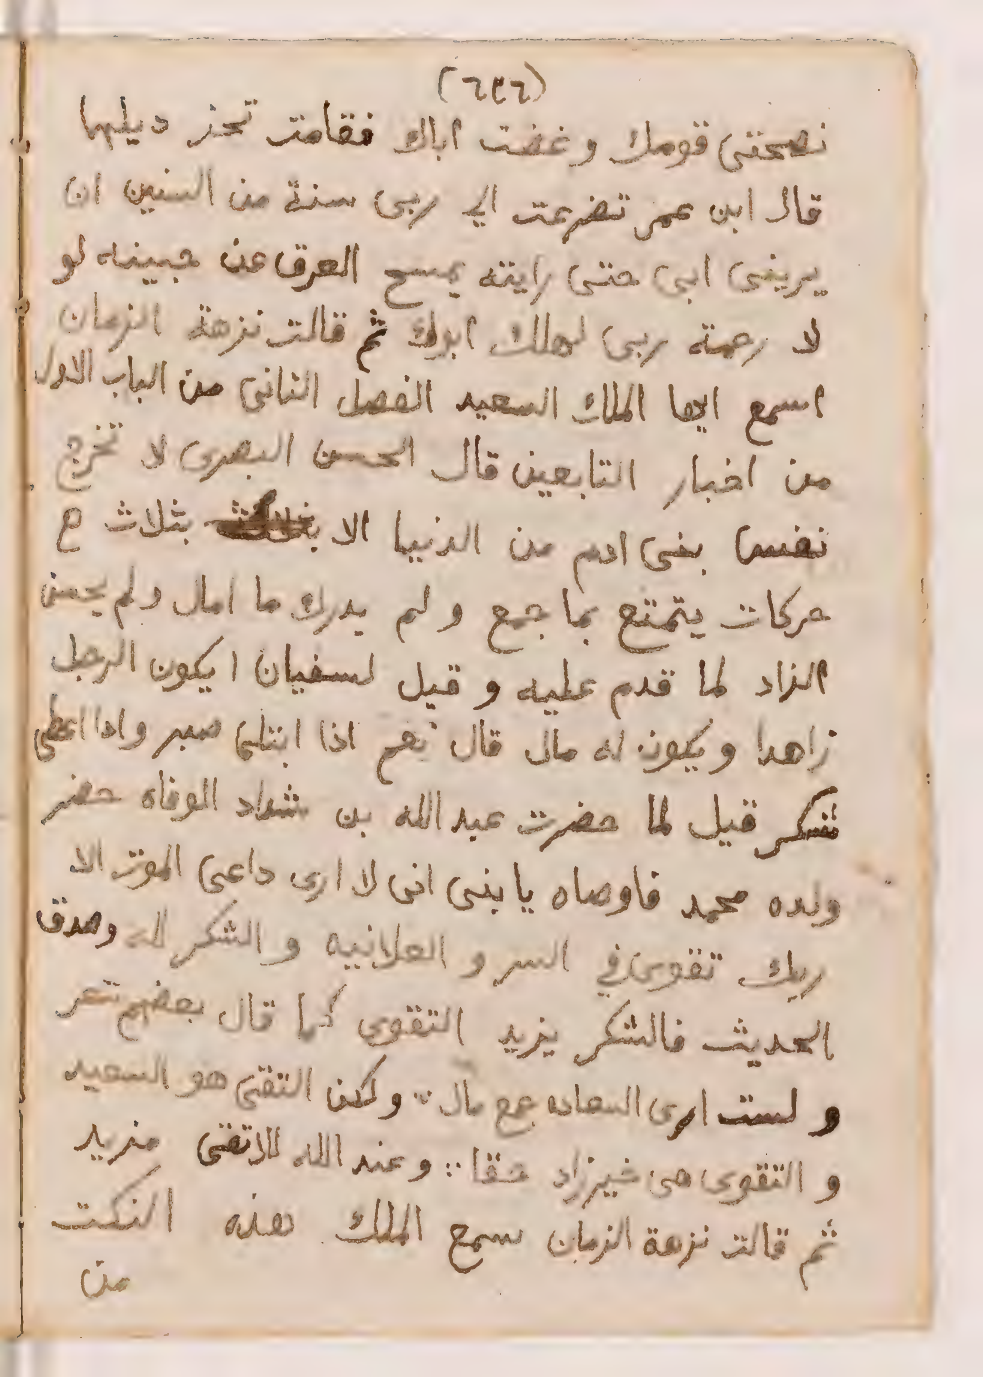 (٦٣٦)
نصحتى قومك وغضت اباك فقامت تجر ديلها
قال ابن عمر تضرعت الي ربى سنة من السنين ان
يرينى ابى حتى رايته يمسح العرق عن جبينه لو
لا رحمة ربى لهلك ابوك ثم قالت نزهة الزمان
اسمع ايها الملك السعيد الفصل الثانى من الباب الاول
من اخبار التابعين قال الحسن البصرى لا تخرج
نفس بنى ادم من الدنيا الا بثلاث ح
حركات يتمتع بما جمع ولم يدرك ما امال ولم يحسن
الزاد لما قدم عليه وقيل لسفيان ايكون الرجل
زاهدا ويكون له مال قال نعم اذا ابتلى صبر واذا اعطى
شكر قيل لما حضرت عبد الله بن شداد الوفاه حضر
ولده محمد فاوصاه يا بنى انى لا ارى داعى الموت الا
ربك تقوى في السر و العلانيه و الشكر لله وصدق
الحديث فالشكر يزيد التقوى كما قال بعضهم شعر
و لست ارى السعاده جمع مال ∴ ولكن التقى هو السعيد
و التقوى هى خير زاد حقا ∴ وعند الله للاتقى مزيد
ثم قالت نزهة الزمان يسمع الملك هذه النكت
من